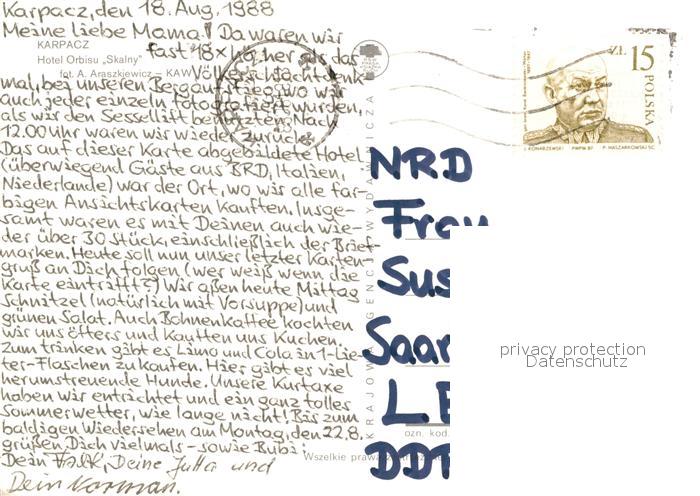 Karpacz, den 18. Aug. 1988
Meine liebe Mama! Da waren wir
KARPACZ
Hotel Orbisu „Skalny"
fot. A. Araszkiewicz – KAW
fast 18 x hier, das
Völkerschlachtdenk-
mal, bei unseren Bergaufstieg, wo wir
auch jeder einzeln fotografiert wurden,
als wir den Sessellift benutzten. Nach
12.00 Uhr waren wir wieder zurück.
Das auf dieser Karte abgebildete Hotel
(überwiegend Gäste aus BRD, Italien,
Niederlande) war der Ort, wo wir alle far-
bigen Ansichtskarten kauften. Insge-
samt waren es mit Deinen auch wie-
der über 30 Stück, einschließlich der Brief-
marken. Heute soll nun unser letzter Karten-
gruß an Dich folgen (wer weiß wenn die
Karte eintrifft?) Wir aßen heute Mittag
Schnitzel (natürlich mit Vorsuppe) und
grünen Salat. Auch Bohnenkaffee kochten
wir uns öfters und kauften uns Kuchen.
Zum trinken gibt es Limo und Cola in 1-Lie-
ter-Flaschen zu kaufen. Hier gibt es viel
herumstreuende Hunde. Unsere Kurtaxe
haben wir entrichtet und ein ganz tolles
Sommerwetter, wie lange nicht! Bis zum
baldigen Wiedersehen am Montag, den 22.8.
grüßen Dich vielmals – sowie Bubi:
Dein Falk, Deine Jutta und
Dein Norman.
KRAJOWA AGENCJA WYDAWNICZA
ozn. kod.
Wszelkie prawa
ZŁ 15
POLSKA
J. KONARZEWSKI PWPW 87 P. NASZARKOWSKI SC.
NRD
Frau
Sus
Saar
L.E
DDR
privacy protection
Datenschutz